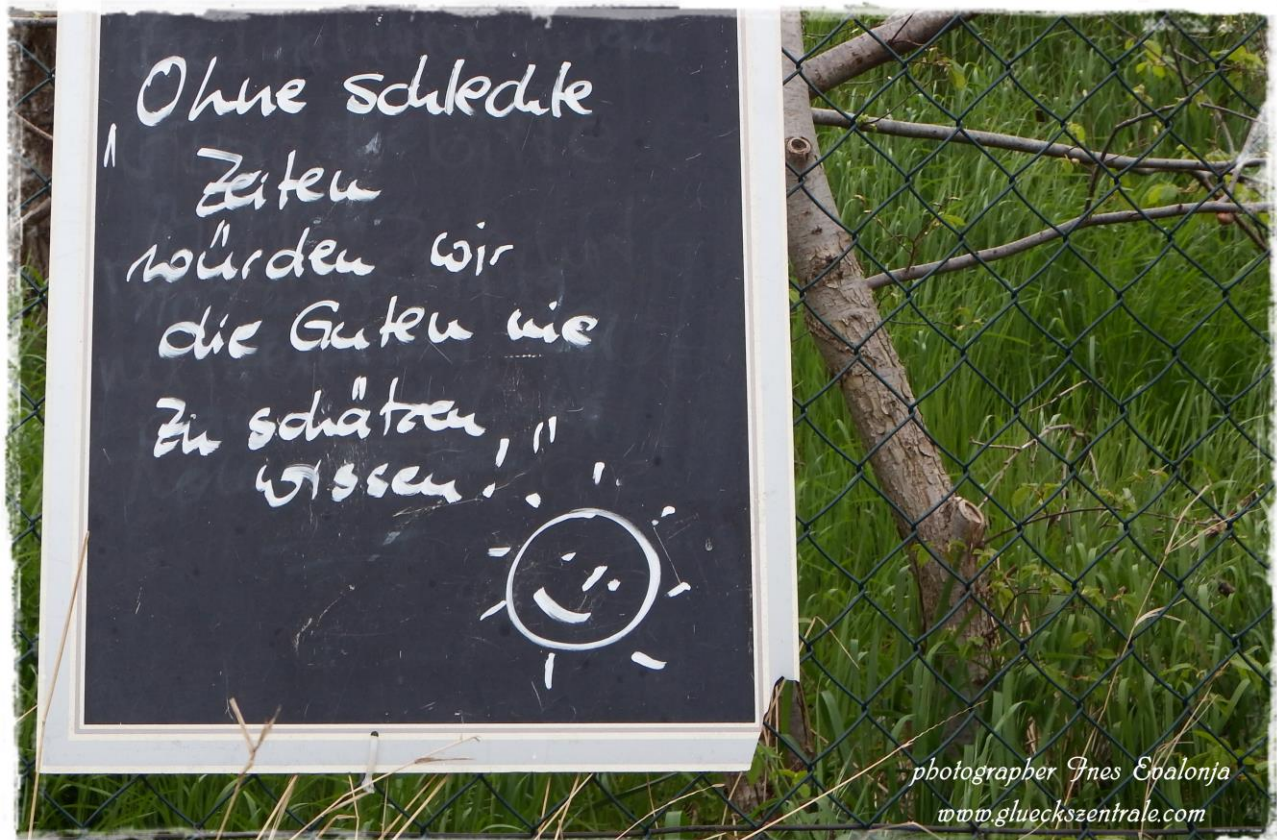 "Ohne schlechte
Zeiten
würden wir
die Guten nie
zu schätzen
wissen!"
photographer Ines Evalonja
www.glueckszentrale.com